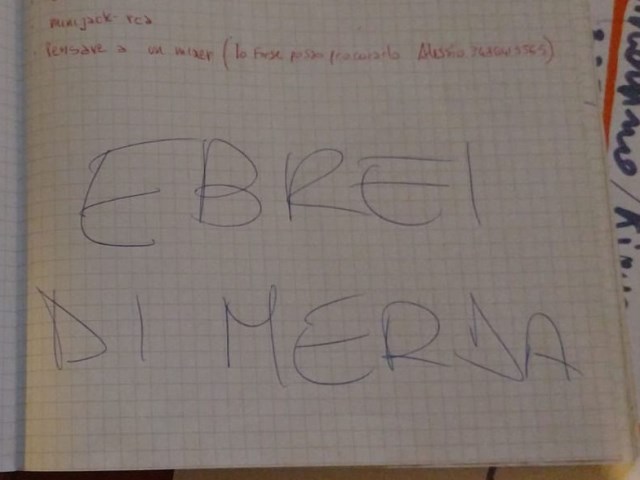 minijack-rca
Pensare a un mixer (lo forse posso procurarlo Alessio
EBREI
DI MERDA